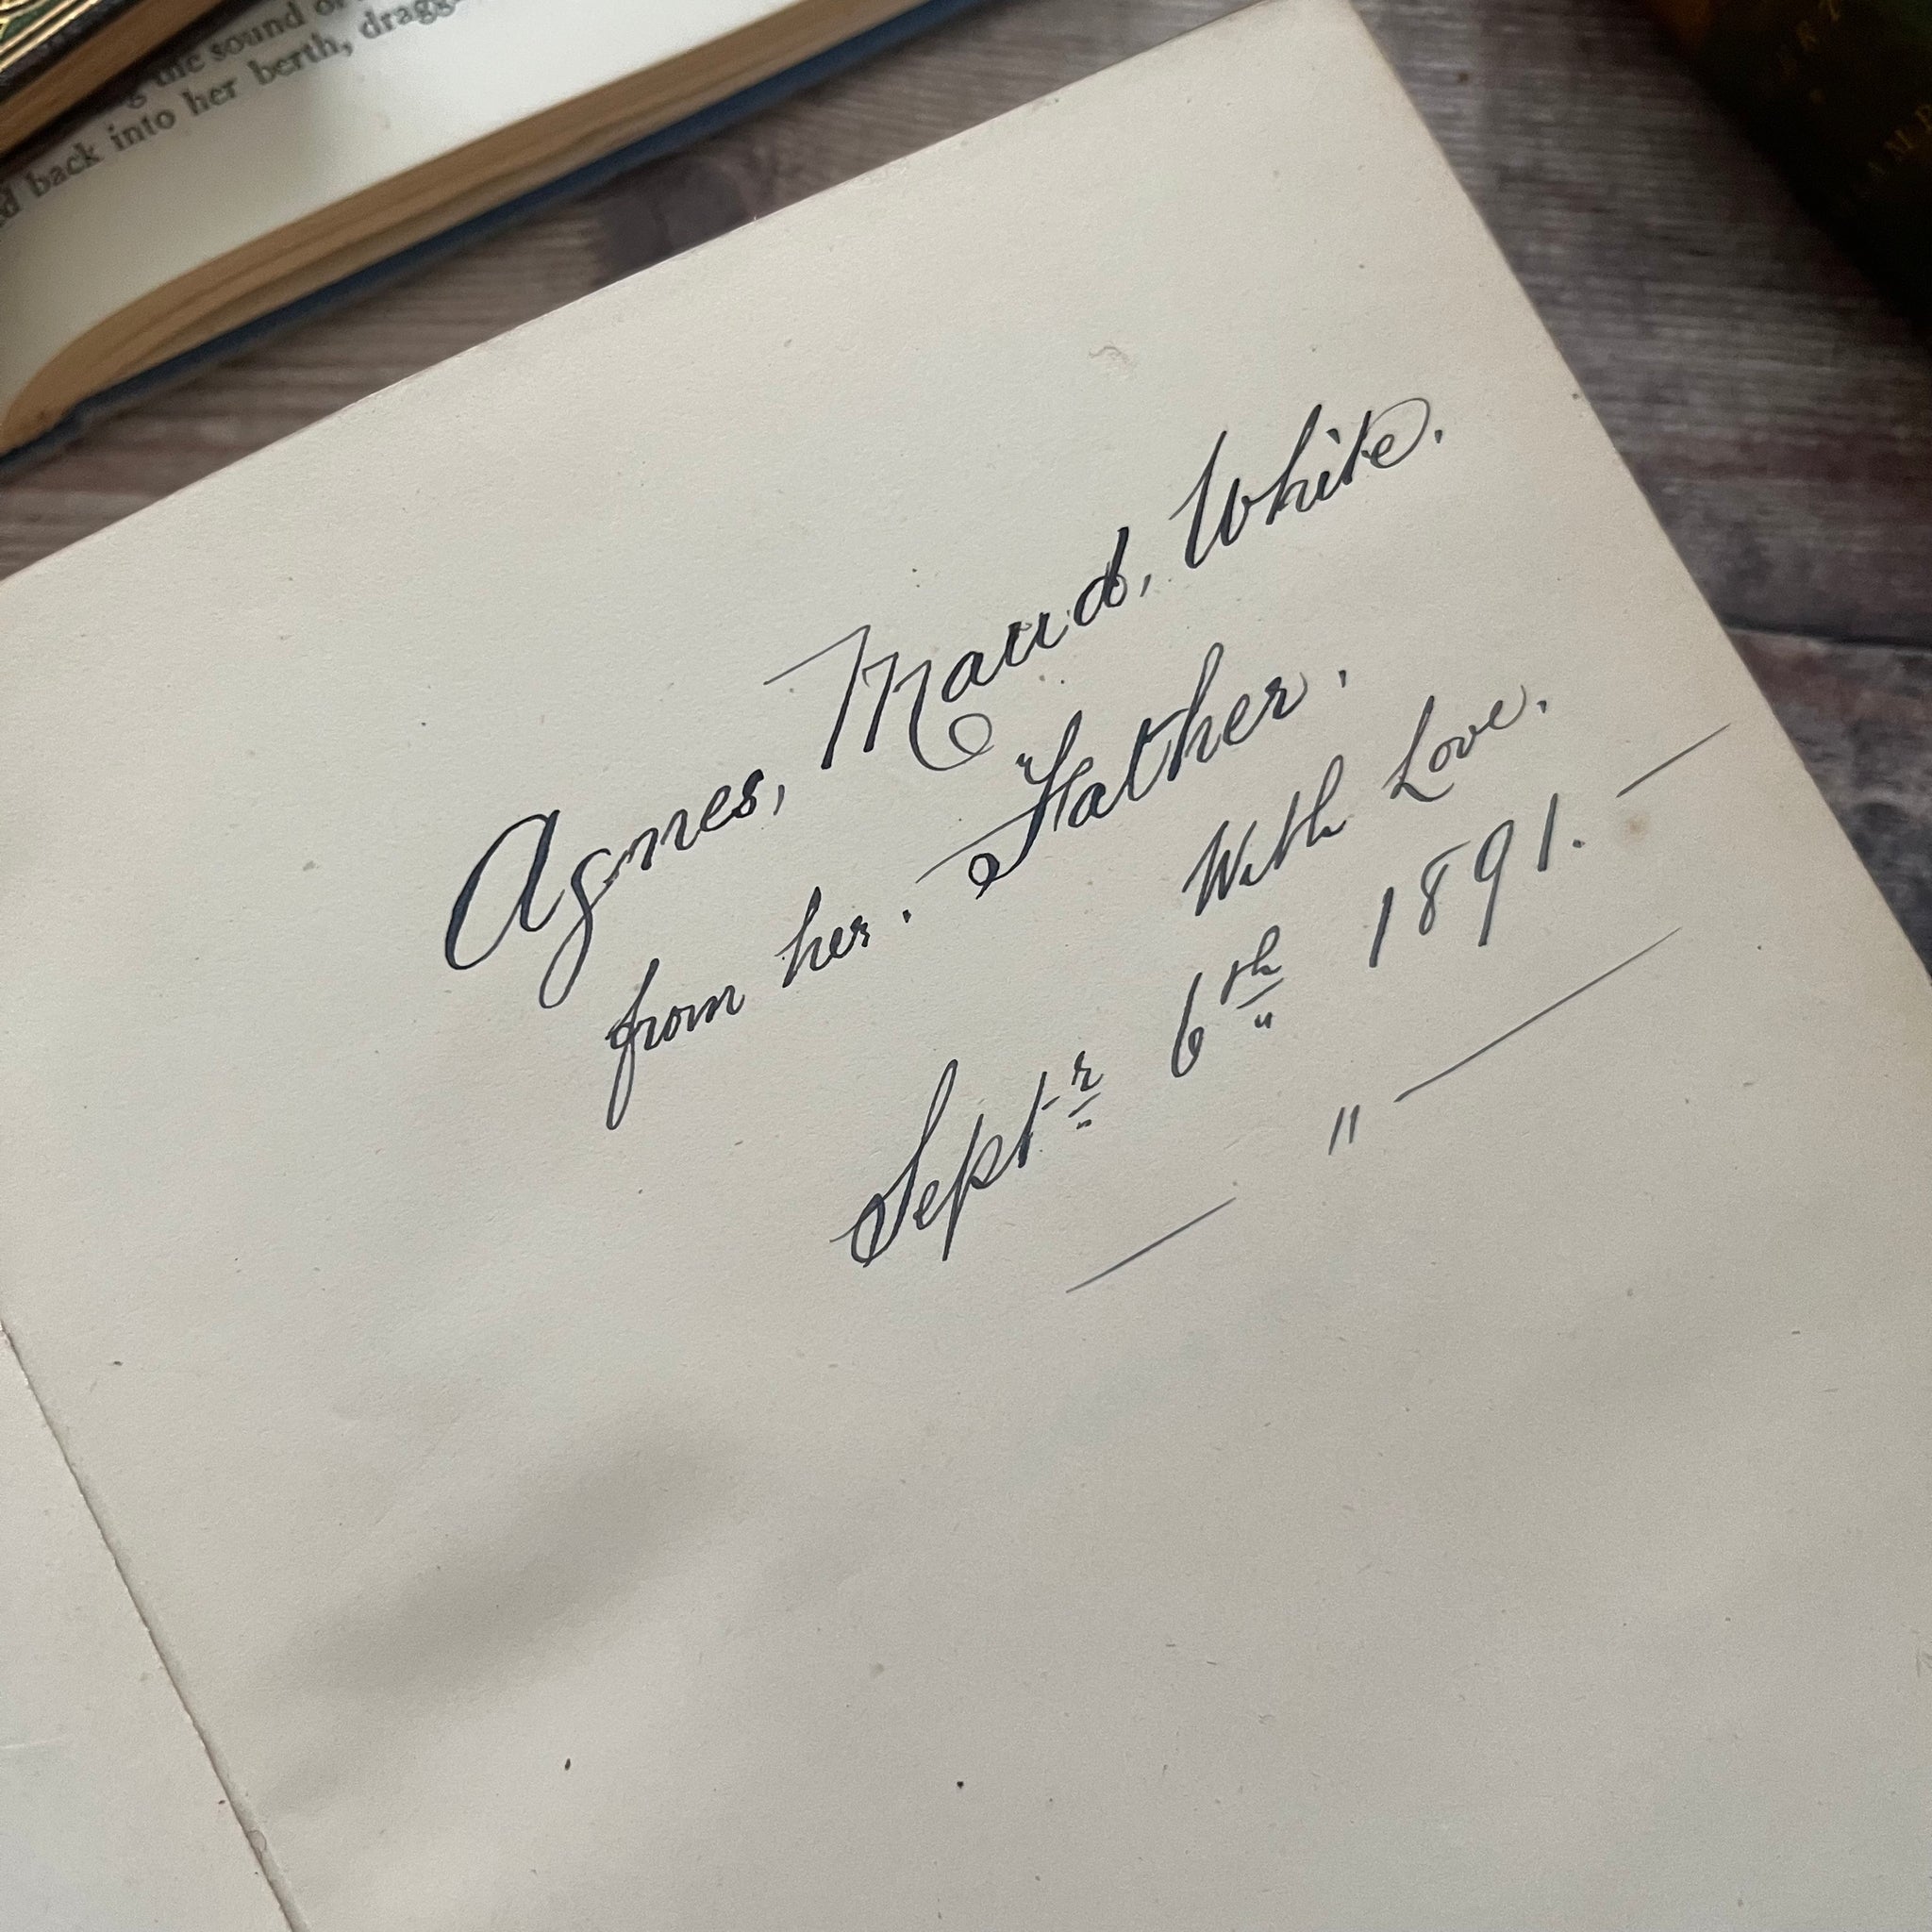 the sound of
back into her berth, dragg-
Agnes, Maud, White.
from her. Father.
With Love.
Septr 6th 1891. —
— " —